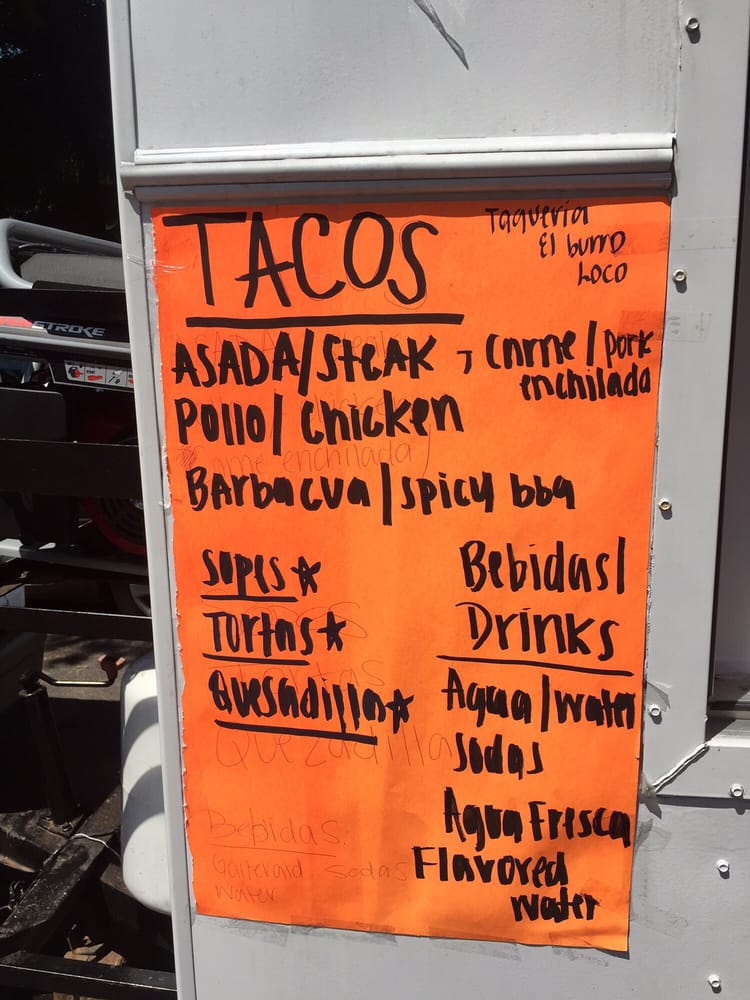 TACOS
Taqueria
El burro
Loco
ASADA/Steak , Carne/pork
enchilada
Pollo/chicken
Carne enchilada/
Barbacua/spicy bbq
Sopes☆
Tortas☆
Quesadilla☆
Quezadilla
Bebidas/
Drinks
Agua/water
Sodas
Agua Fresca
Flavored
water
Bebidas.
Gaiteraid Sodas
Water
STROKE